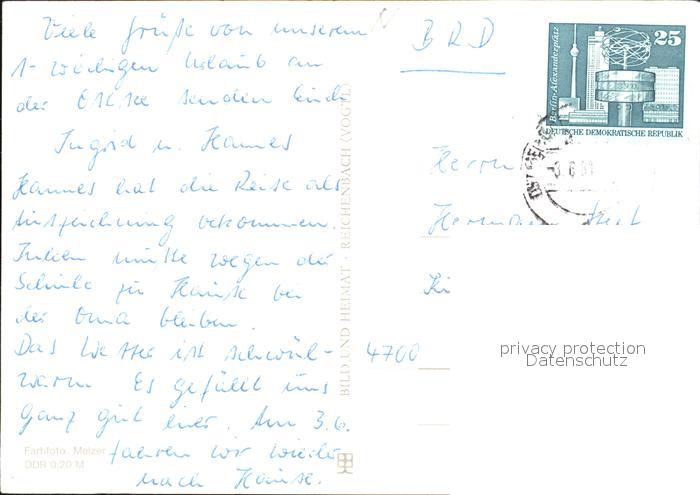 Viele Grüße von unserem
1-wöchigen Urlaub an
der Ostsee senden Euch
Ingrid u. Hannes
Hannes hat die Reise als
Auszeichnung bekommen.
mußte wegen der
Schule zu Hause bei
der Oma bleiben.
Das Wetter ist schwül-
warm. Es gefällt uns
ganz gut hier. Am 3.6.
fahren wir wieder
nach Hause.
Farbfoto: Melzer
DDR 0,20 M
BILD UND HEIMAT · REICHENBACH (VOGTL)
BRD
Berlin-Alexanderplatz
25
DEUTSCHE DEMOKRATISCHE REPUBLIK
Herrn
4700
privacy protection
Datenschutz